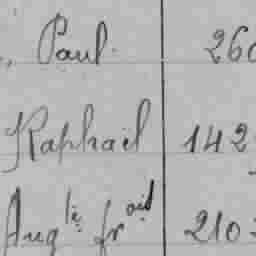 Paul. 260
Raphaël 142
Aug^(li) fr^(oid) 210